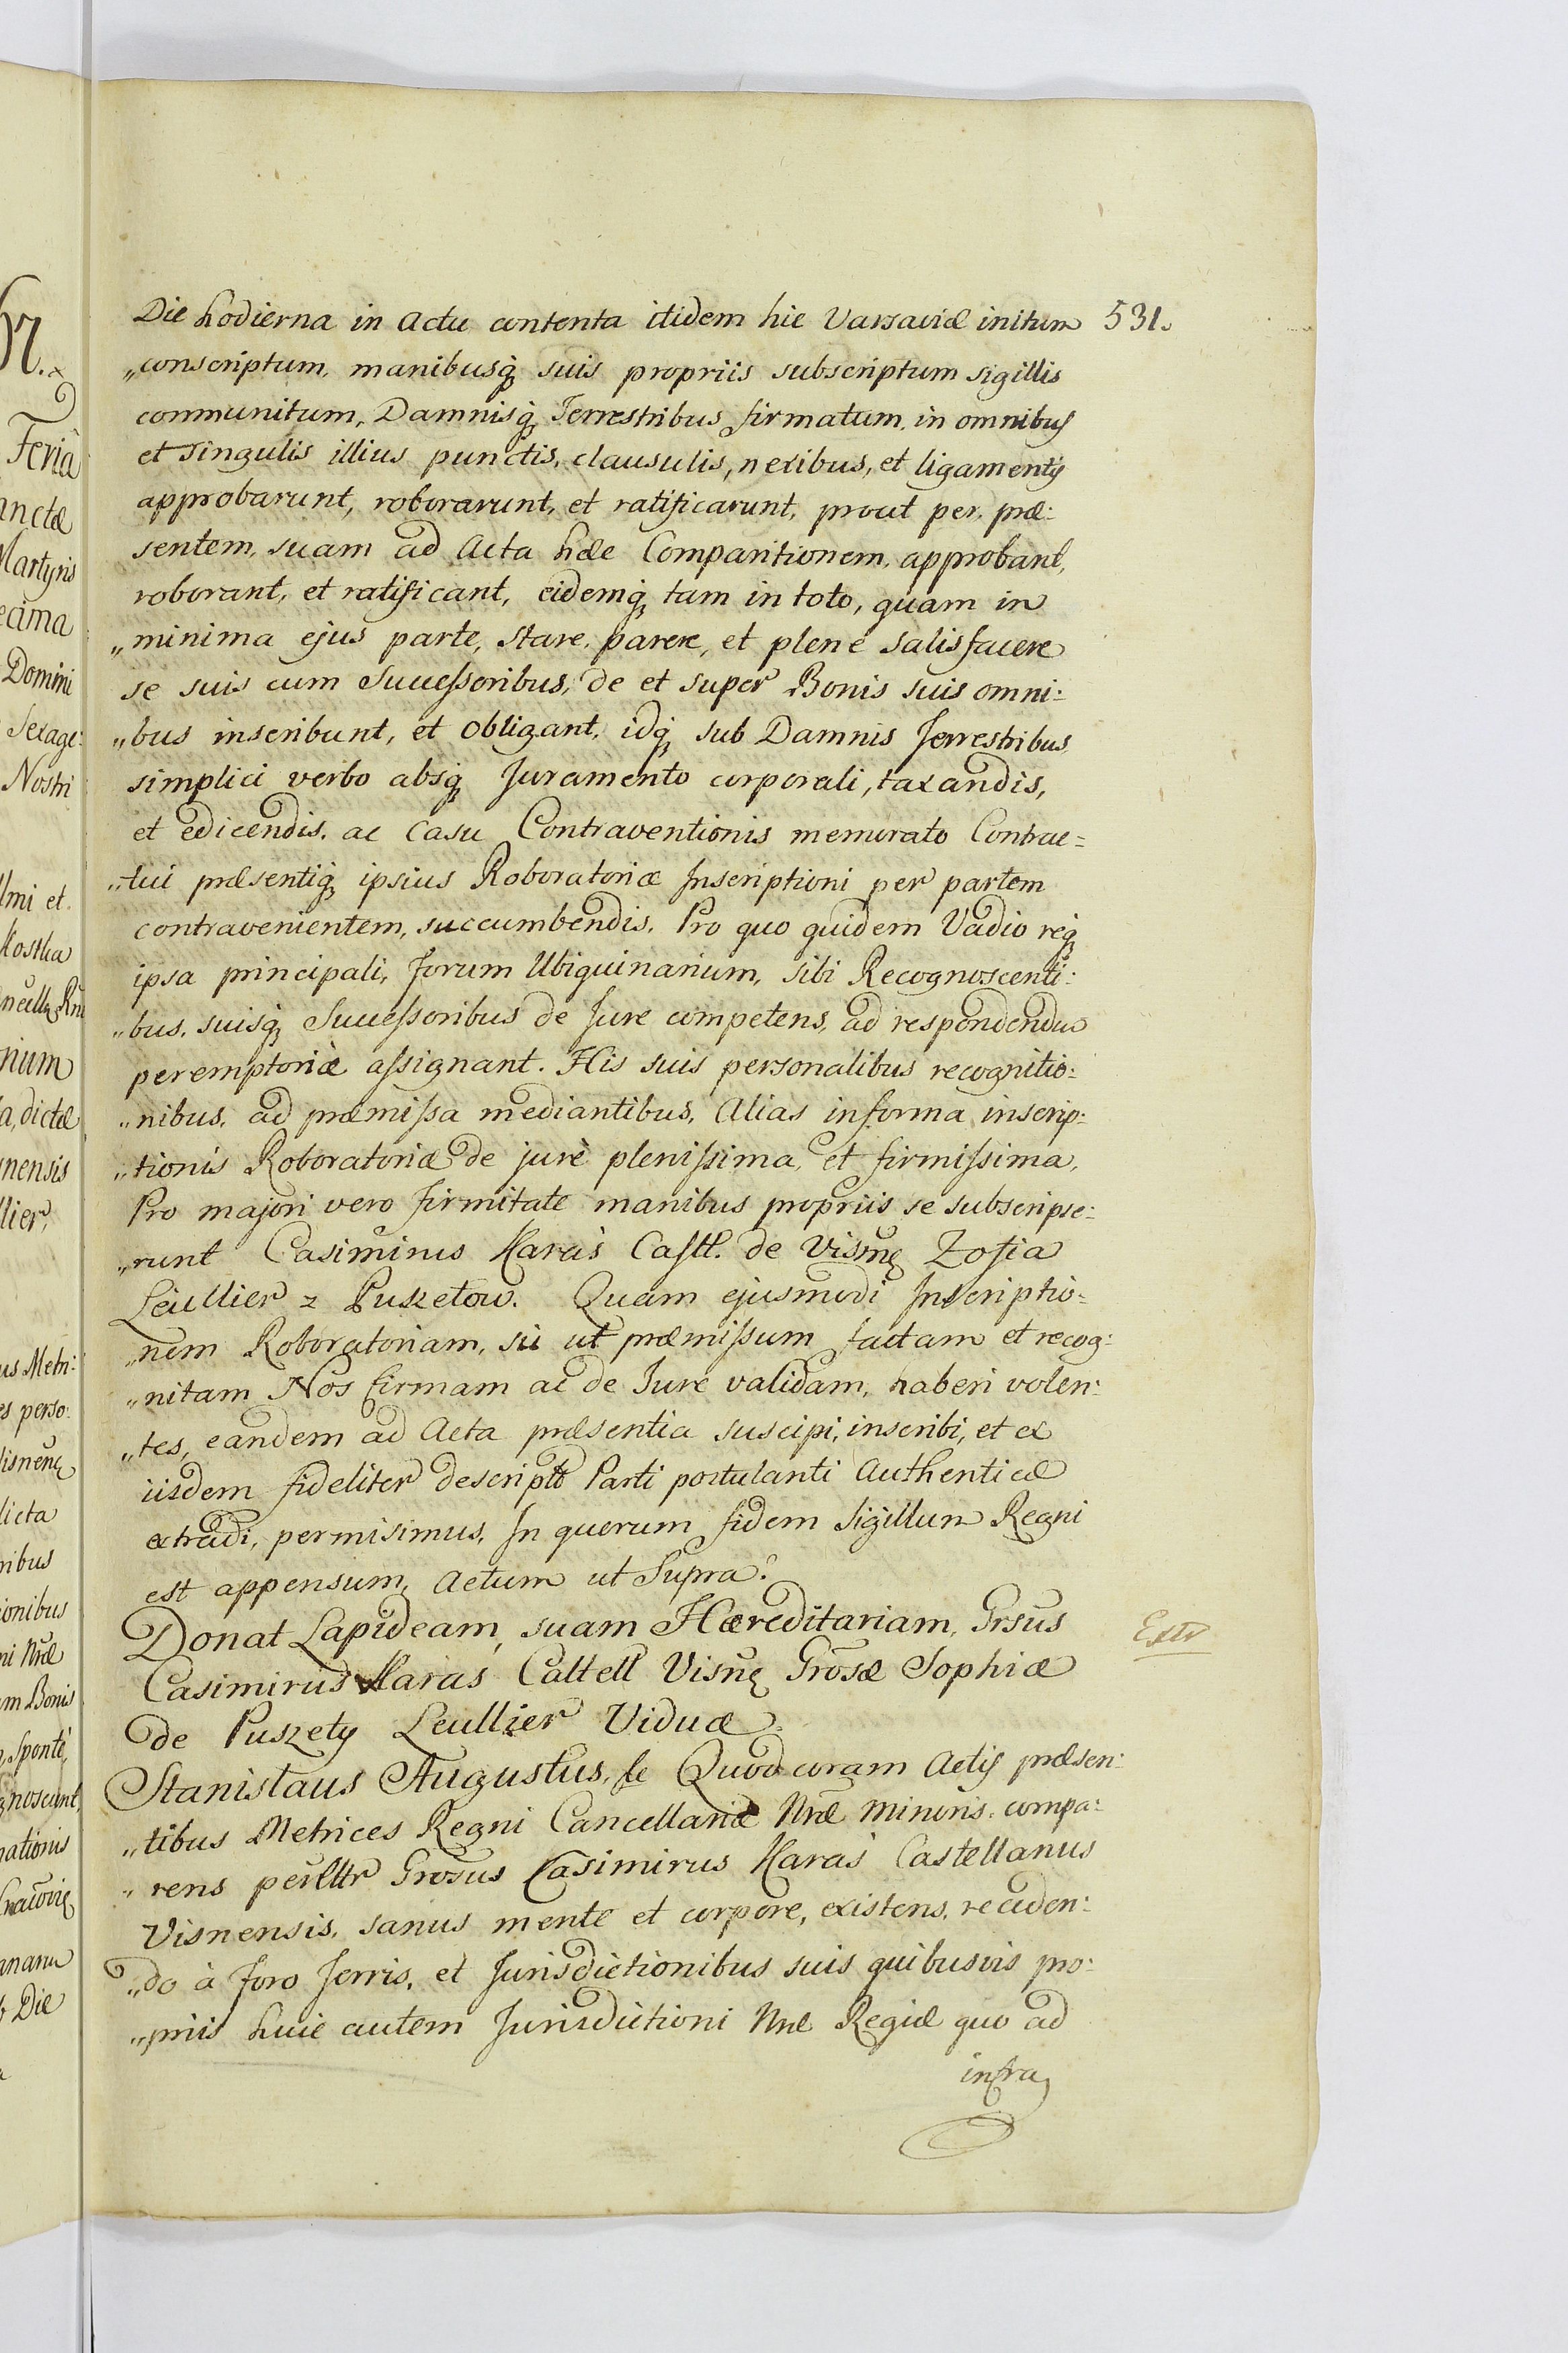 531.
Die hodierna in Actu contenta itidem hic Varsaviæ initum
„conscriptum, manibusq̢ suis propriis subscriptum sigillis
communitum, Damnisq̢ Terrestribus firmatum, in omnibus
et singulis illius punctis, clausulis, nexibus, et ligamentis
approbarunt, roborarunt, et ratificarunt, prout per præ:
sentem, suam ad Acta hæc Comparitionem, approbant,
roborant, et ratificant, eidemq̢ tam in toto, quam in
„minima ejus parte, stare, parere, et plene satisfacere
se suis cum Successoribus, de et super Bonis suis omni:
„bus inscribunt, et obligant, idq̢ sub Damnis Terrestribus
simplici verbo absq̢ Juramento corporali, taxandis,
et edicendis, ac Casu Contraventionis memorato Contrac=
„tui præsentiq̢ ipsius Roboratoriæ Inscriptioni per partem
contravenientem, succumbendis. Pro quo quidem Vadio req̢
ipsa principali, forum Ubiquinarium, sibi Recognoscenti:
„bus, suisq̢ Successoribus de Jure competens, ad respondendum
peremptoriè assignant. His suis personalibus recognitio:
„nibus, ad præmissa mediantibus, Alias in forma inscrip:
„tionis Roboratoriæ de jurè plenissima, et firmissima,
Pro majori vero firmitate manibus propriis se subscripse:
„runt Casimirus Karaś Castl. de Visnę Zofia
Leullier z Puszetow. Quam ejusmodi Inscriptio:
„nem Roboratoriam, sic ut præmissum factam et recog:
„nitam Nos firmam ac de Jure validam, haberi volen:
„tes, eandem ad Acta præsentia suscipi, inscribi, et ex
iisdem fideliter descripto Parti postulanti Authenticè
extradi, permisimus, In quorum fidem Sigillum Regni
est appensum, Actum ut Supra.
Donat Lapideam, suam Hæreditariam, Grsus
Extr
Casimirus Karaś Castell Visnę Grosæ Sophiæ
de Puszety Leullier Viduæ
Stanislaus Augustus, &c Quod coram Actis præsen:
„tibus Metrices Regni Cancellariæ Nræ Minoris, compa:
„rens perlltr Grosus Casimirus Karaś Castellanus
Visnensis, sanus mente et corpore, existens, recedен:
„do à foro Terris, et Jurisdictionibus suis quibusvis pro:
„priis huic autem Jurisdictioni Nræ Regiæ quo ad
infra